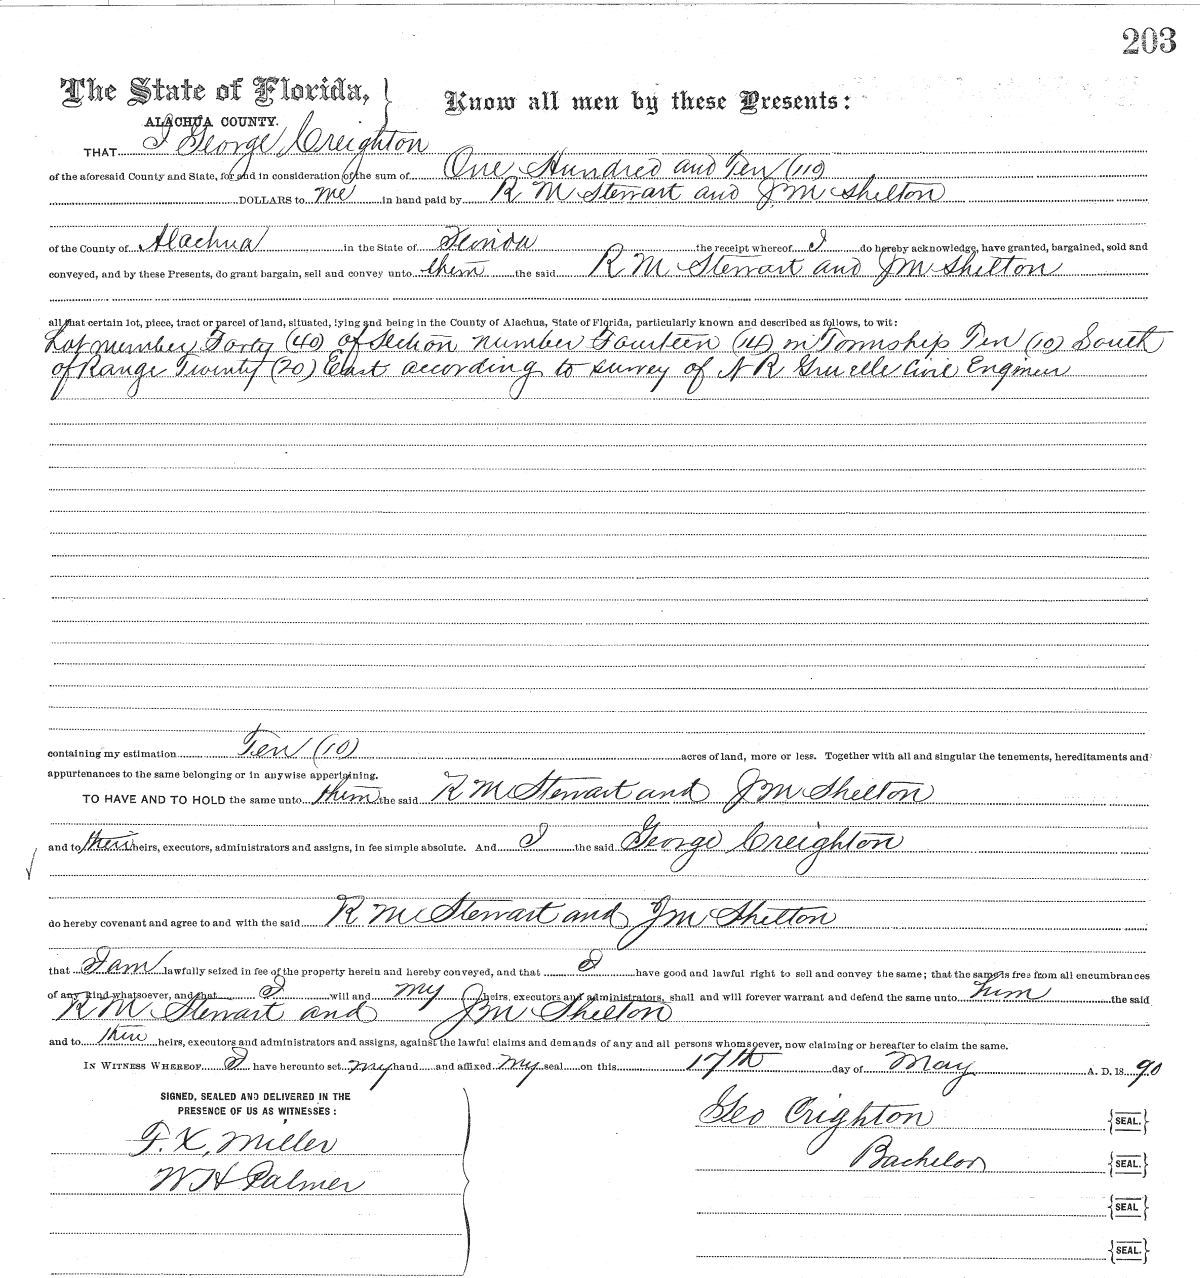 203
The State of Florida, } Know all men by these Presents:
ALACHUA COUNTY.
THAT I George Creighton
of the aforesaid County and State, for and in consideration of the sum of One Hundred and Ten (110)
DOLLARS to me in hand paid by R M Stewart and J M Shelton
of the County of Alachua in the State of Florida the receipt whereof I do hereby acknowledge, have granted, bargained, sold and
conveyed, and by these Presents, do grant bargain, sell and convey unto them the said R M Stewart and J M Shelton
all that certain lot, piece, tract or parcel of land, situated, lying and being in the County of Alachua, State of Florida, particularly known and described as follows, to wit:
Lot number Forty (40) of Section number Fourteen (14) in Township Ten (10) South
of Range Twenty (20) East according to survey of N R Gruelle Civil Engineer
containing my estimation Ten (10) acres of land, more or less. Together with all and singular the tenements, hereditaments and
appurtenances to the same belonging or in anywise appertaining.
TO HAVE AND TO HOLD the same unto them the said R M Stewart and J M Shelton
and to their heirs, executors, administrators and assigns, in fee simple absolute. And I the said George Creighton
do hereby covenant and agree to and with the said R M Stewart and J M Shelton
that I am lawfully seized in fee of the property herein and hereby conveyed, and that I have good and lawful right to sell and convey the same; that the same is free from all encumbrances
of any kind whatsoever, and that I will and my heirs, executors and administrators, shall and will forever warrant and defend the same unto him the said
R M Stewart and J M Shelton
and to their heirs, executors and administrators and assigns, against the lawful claims and demands of any and all persons whomsoever, now claiming or hereafter to claim the same.
IN WITNESS WHEREOF I have hereunto set my hand and affixed my seal on this 17th day of May A. D. 18 90
SIGNED, SEALED AND DELIVERED IN THE
PRESENCE OF US AS WITNESSES:
F. X. Miller
W H Palmer
Geo Crighton {SEAL.}
Bachelor {SEAL.}
{SEAL}
{SEAL.}